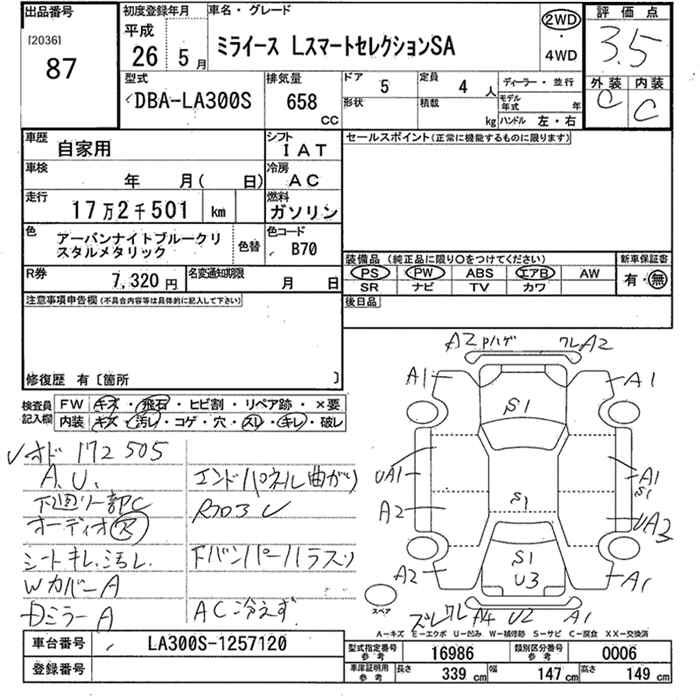 出品番号
[2036]
87
初度登録年月
平成
26 5月
車名・グレード
ミライース LスマートセレクションSA
2WD
・
4WD
評価点
3.5
外装 内装
C C
型式
DBA-LA300S
排気量
658
CC
ドア 5
形状
定員 4 人
積載 kg
ディーラー・並行
モデル年式 年
ハンドル 左・右
車歴
自家用
シフト
IAT
車検
年 月( 日)
冷房
AC
走行
17万2千501 km
燃料
ガソリン
色
アーバンナイトブルークリ
スタルメタリック
色替
色コード
B70
R券
7,320円
名変通知期限
月 日
セールスポイント(正常に機能するものに限ります)
装備品(純正品に限り○をつけてください)
PS PW ABS エアB AW
SR ナビ TV カワ
新車保証書
有・無
後日品
注意事項申告欄(不具合内容等は具体的に記入して下さい)
修復歴 有〔箇所 〕
検査員
記入欄
FW キズ・飛石・ヒビ割・リペア跡・×要
内装 キズ・汚レ・コゲ・穴・スレ・キレ・破レ
オド 172505
A.U.
下廻り一部C
オーディオ欠
シートキレ.汚レ.
WカバーA
DミラーA
エンドパネル曲がり
Rフロア U
下バンパーハラスリ
AC冷えず
A2 Pハゲ ワレA2
A1 A1
S1
UA1 A1
S1
S1
A2 UA3
S1
U3
A2 A1
ズレ ワレ A4 U2 A1
スペア
A-キズ E-エクボ U-凹み W-補修跡 S-サビ C-腐食 XX-交換済
車台番号
LA300S-1257120
登録番号
型式指定番号
参考
16986
類別区分番号
参考
0006
車庫証明用
参考
長さ 339 cm 幅 147 cm 高さ 149 cm